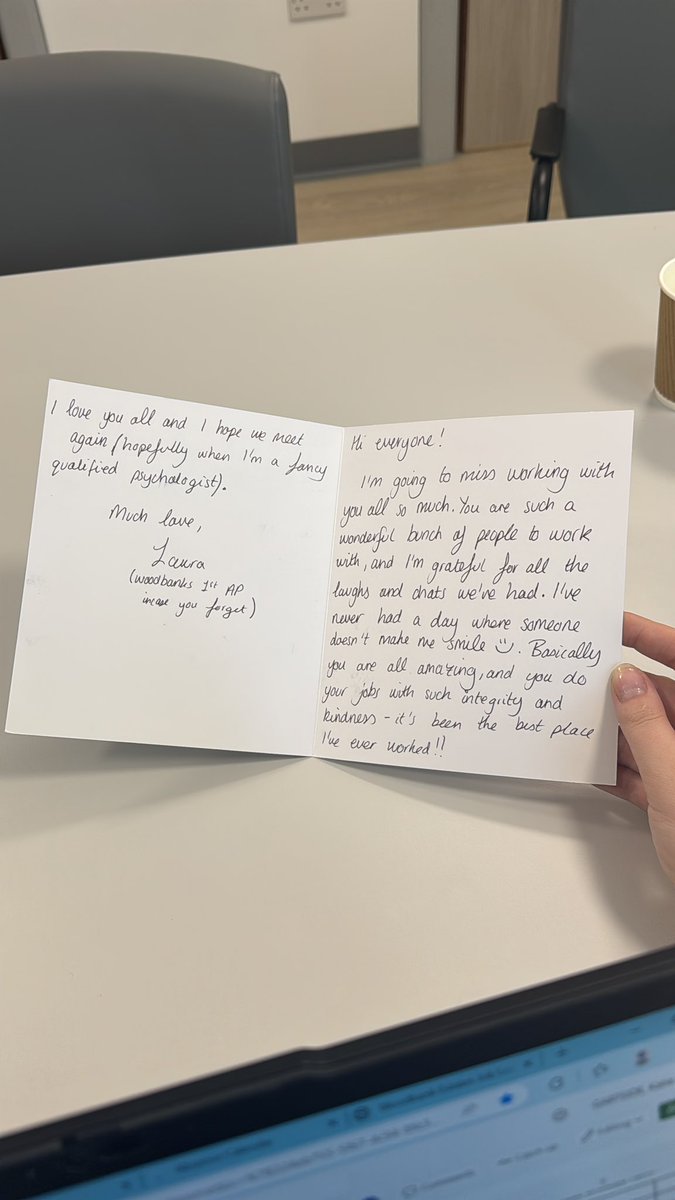 Hi everyone!
I'm going to miss working with
you all so much. You are such a
wonderful bunch of people to work
with, and I'm grateful for all the
laughs and chats we've had. I've
never had a day where someone
doesn't make me smile :). Basically
you are all amazing, and you do
your jobs with such integrity and
kindness - it's been the best place
I've ever worked!!
I love you all and I hope we meet
again (hopefully when I'm a fancy
qualified psychologist).
Much love,
Laura
(woodbanks 1st AP
incase you forget)